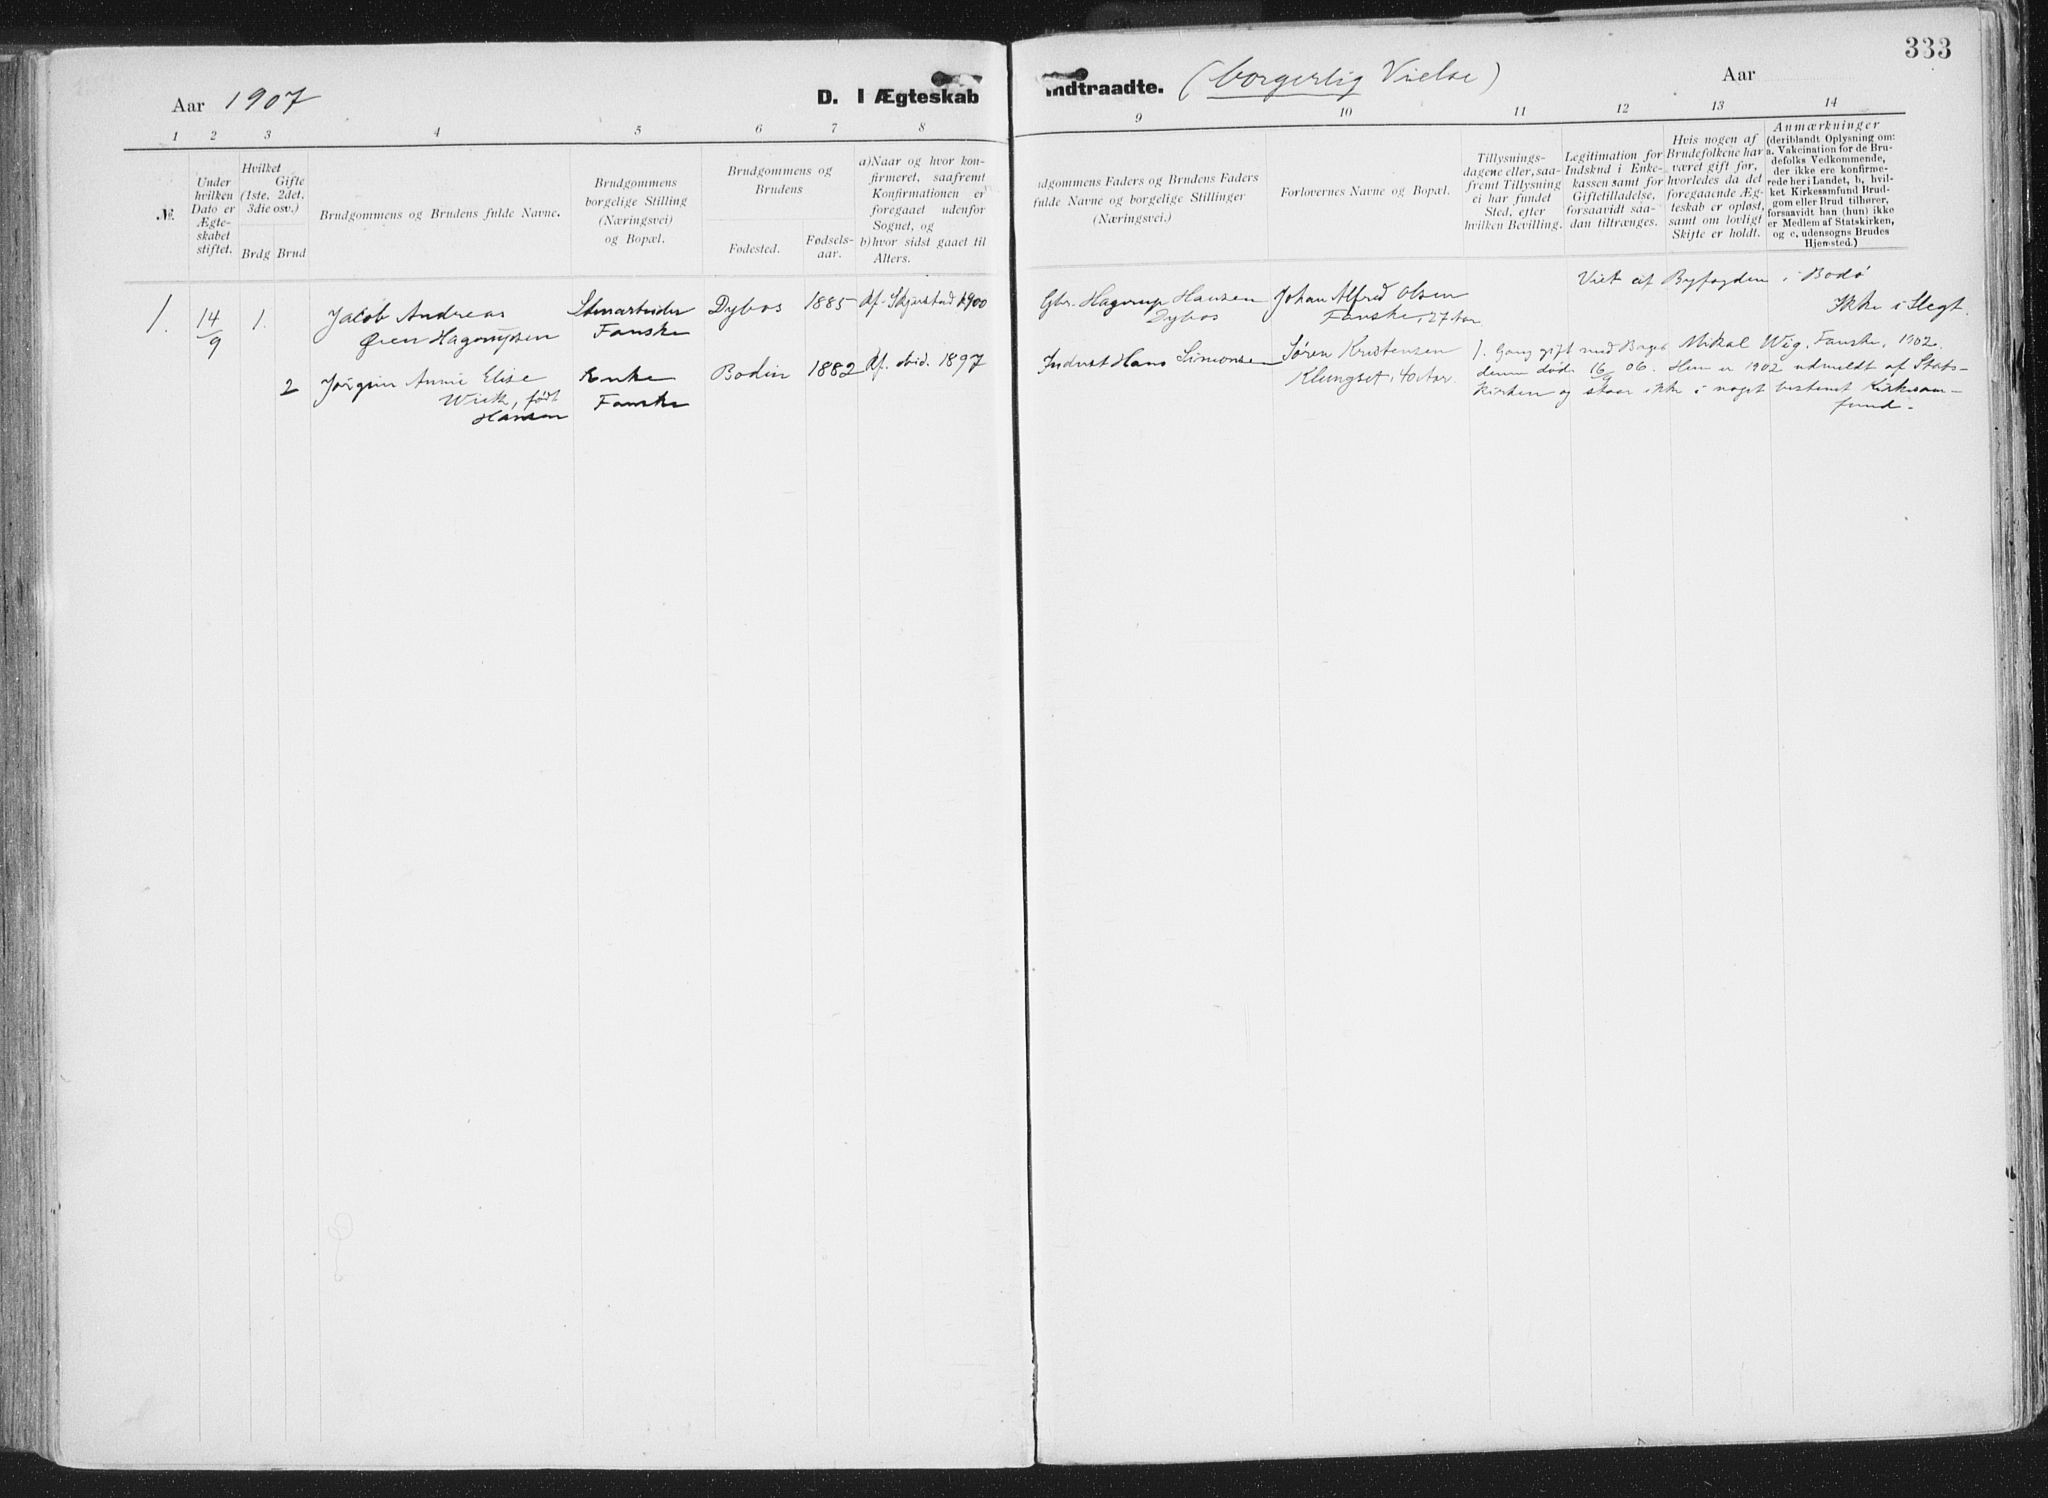 333
Aar 1907
D. I Ægteskab indtraadte. (borgerlig Vielse)
Aar
1 2 3 4 5 6 7 8 9 10 11 12 13 14
№.
Under
hvilken
Dato er
Ægte-
skabet
stiftet.
Hvilket
Gifte
(1ste, 2det,
3die osv.)
Brdg Brud
Brudgommens og Brudens fulde Navne.
Brudgommens
borgelige Stilling
(Næringsvei)
og Bopæl.
Brudgommens og
Brudens
Fødested.
Fødsels-
aar.
a) Naar og hvor kon-
firmeret, saafremt
Konfirmationen er
foregaaet udenfor
Sognet, og
b) hvor sidst gaaet til
Alters.
dgommens Faders og Brudens Faders
fulde Navne og borgelige Stillinger
(Næringsvei.)
Forlovernes Navne og Bopæl.
Tillysnings-
dagene eller, saa-
fremt Tillysning
ei har fundet
Sted, efter
hvilken Bevilling.
Legitimation for
Indskud i Enke-
kassen samt for
Giftetilladelse,
forsaavidt saa-
dan tiltrænges.
Hvis nogen af
Brudefolkene har
været gift før,
hvorledes da det
foregaaende Æg-
teskab er opløst,
samt om lovligt
Skifte er holdt.
Anmærkninger
(deriblandt Oplysning om:
a. Vakcination for de Bru-
defolks Vedkommende,
der ikke ere konfirme-
rede her i Landet, b, hvil-
ket Kirkesamfund Brud-
gom eller Brud tilhører,
forsaavidt han (hun) ikke
er Medlem af Statskirken,
og c. udensogns Brudes
Hjemsted.)
Viet af Byfogden i Bodø
1. 14/9 1. Jacob Andreas Stenarbeider Dybos 1885 Kf. Skjerstad 1900 Gbr. Hagerup Hansen Johan Alfred Olsen Ikke i Slegt.
Hagerupsen Fauske Dybos Fauske, 27 Aar
2 Annie Elise Enke Bodin 1882 Kf. ibid. 1897 Indrst Hans Simonsen Søren Kristensen 1. Gang gift med Baget Mikal Wig, Fauske, 1902.
født Fauske Klungset, 40 Aar. denne døde 16/9 06. Hun er 1902 udmeldt af Stats-
Hansen kirken og staar ikke i noget bestemt Kirkesam-
fund.